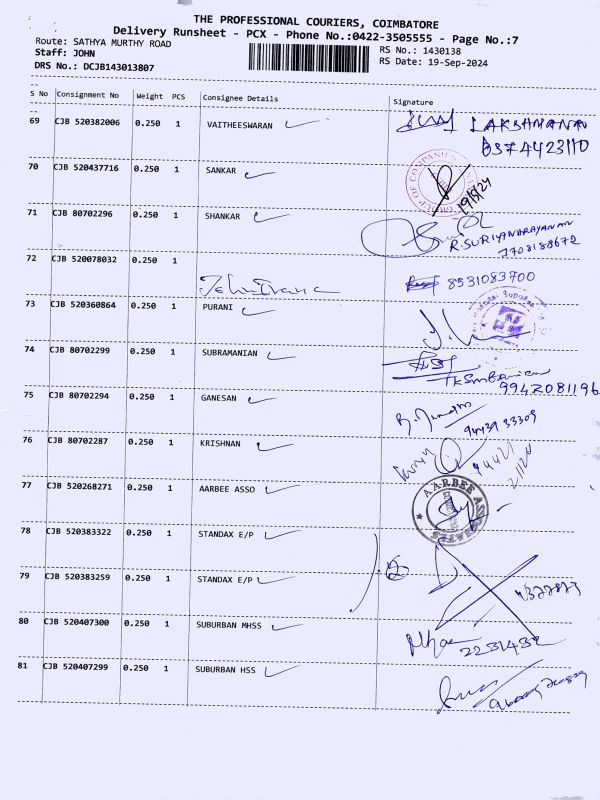 THE PROFESSIONAL COURIERS, COIMBATORE
Delivery Runsheet - PCX - Phone No.:0422-3505555 - Page No.:7
Route: SATHYA MURTHY ROAD
Staff: JOHN
DRS No.: DCJB143013807
RS No.: 1430138
RS Date: 19-Sep-2024
S No Consignment No Weight PCS Consignee Details Signature
69 CJB 520382006 0.250 1 VAITHEESWARAN LAKSHMANAN
8374423110
70 CJB 520437716 0.250 1 SANKAR
71 CJB 80702296 0.250 1 SHANKAR R.SURIYANARAYANAN
7708188672
72 CJB 520078032 0.250 1 8531083700
73 CJB 520360864 0.250 1 PURANI
74 CJB 80702299 0.250 1 SUBRAMANIAN
9942081196
75 CJB 80702294 0.250 1 GANESAN 94439 33309
76 CJB 80702287 0.250 1 KRISHNAN 94421
77 CJB 520268271 0.250 1 AARBEE ASSO AARBEE ASSOCIATES
78 CJB 520383322 0.250 1 STANDAX E/P
79 CJB 520383259 0.250 1 STANDAX E/P
80 CJB 520407300 0.250 1 SUBURBAN MHSS 2231432
81 CJB 520407299 0.250 1 SUBURBAN HSS